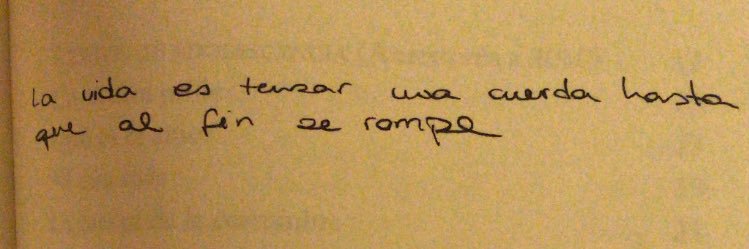 la vida es tensar una cuerda hasta
que al fin se rompe